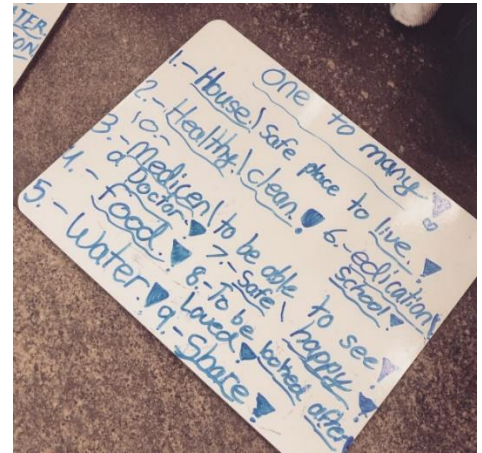 TER.
ON
One to many
1.- House! \ safe place to live.
2.- Healthy! \ clean.
10.-
3.- medicen! \ to be able to see
a Doctor.
4.- food.
5.- Water.
6.- edication \
school
7.- Safe \ happy
8.- To be looked after \
Loved
9.- Share